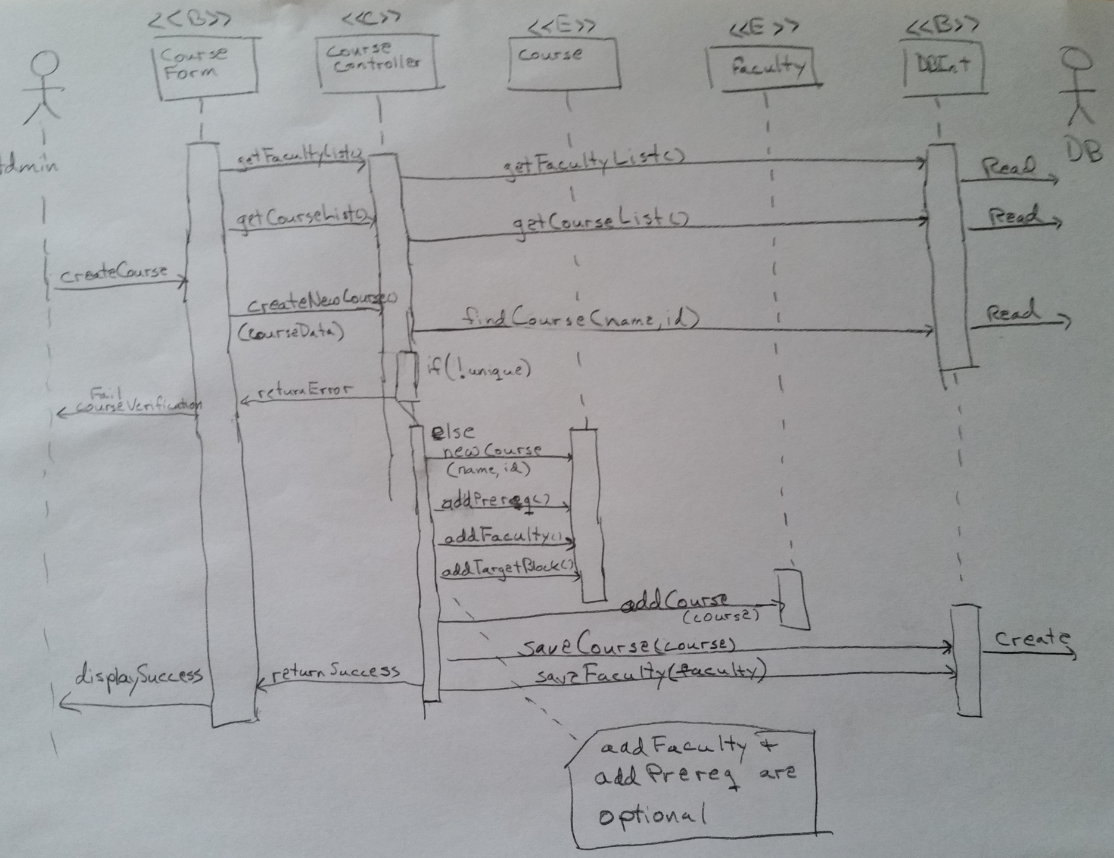 <<B>>
<<C>>
<<E>>
<<E>>
<<B>>
Course
Form
Course
Controller
Course
Faculty
DBInt
Admin
DB
getFacultyList()
getFacultyList()
Read
getCourseList()
getCourseList()
Read
createCourse
createNewCourse()
(courseData)
findCourse(name,id)
Read
if(!unique)
returnError
Fail
courseVerification
else
newCourse
(name,id)
addPrereq()
addFaculty()
addTargetBlock()
addCourse
(course)
saveCourse(course)
Create
displaySuccess
returnSuccess
saveFaculty(faculty)
addFaculty +
addPrereq are
optional